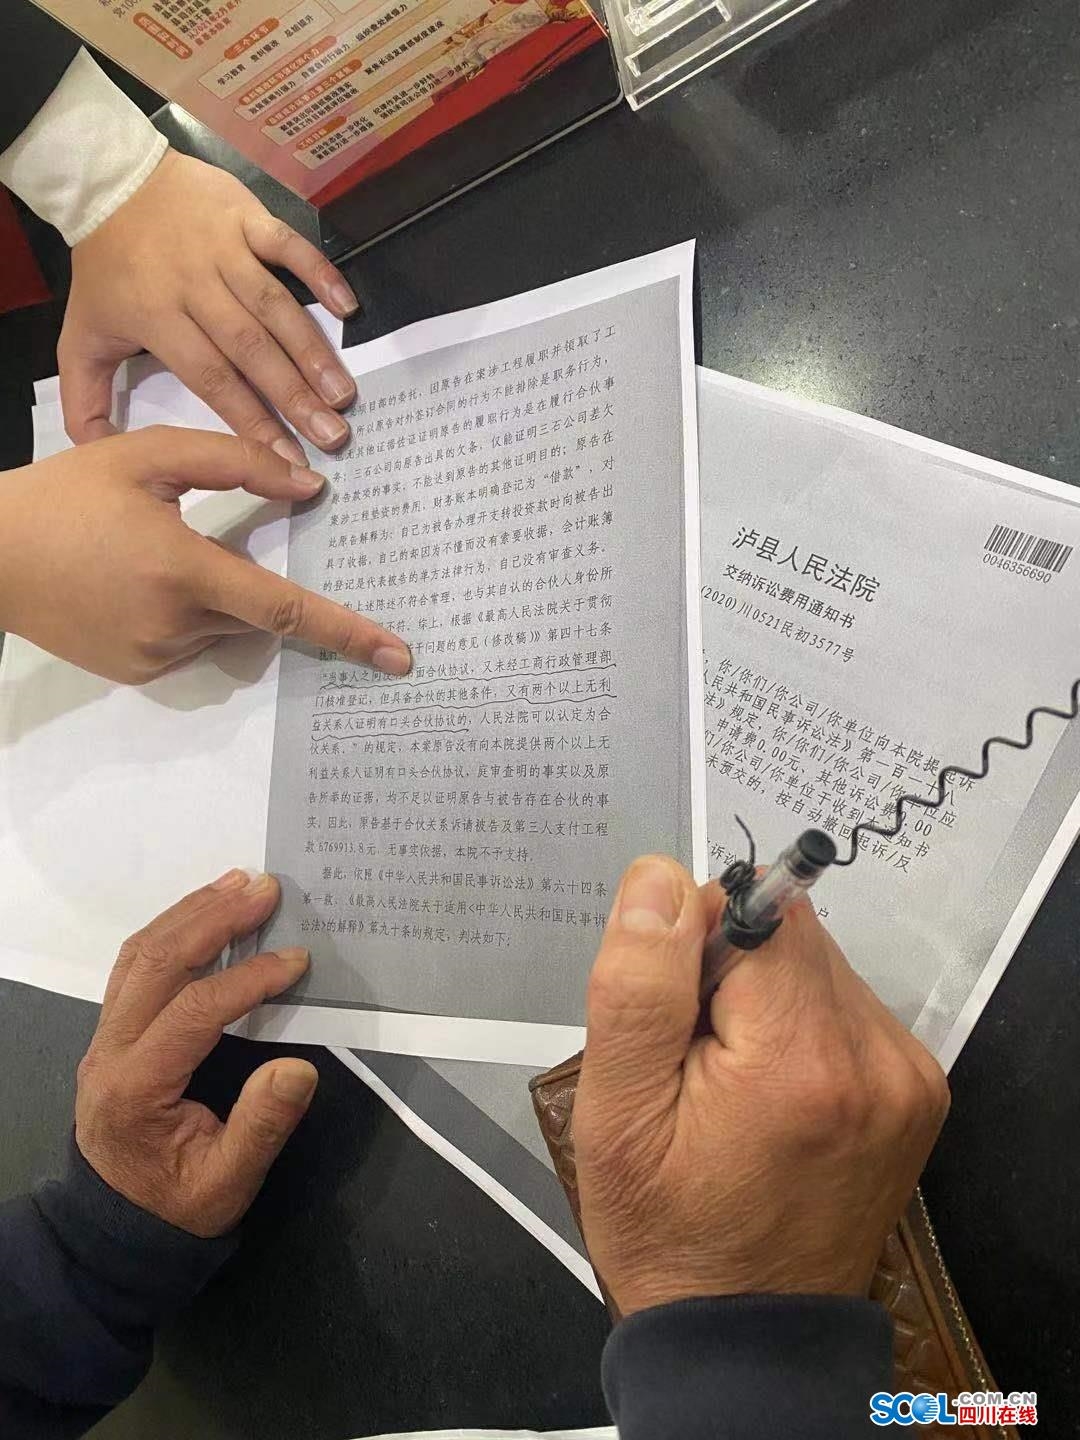 三个环节
学习教育 查纠整改 总结提升
政治生态进一步优化 纪律作风进一步好转
素质能力进一步增强 执法司法公信力进一步提升
项目部的委托，因原告在案涉工程履职并领取了工
所以原告对外签订合同的行为不能排除是职务行为，
也无其他证据佐证证明原告的履职行为是在履行合伙事
务；三石公司向原告出具的欠条，仅能证明三石公司差欠
原告款项的事实，不能达到原告的其他证明目的；原告在
案涉工程垫资的费用，财务账本明确登记为“借款”，对
此原告解释为：自己为被告办理开支转投资款时向被告出
具了收据，自己的却因为不懂而没有索要收据，会计账簿
的登记是代表被告的单方法律行为，自己没有审查义务。
上述陈述不符合常理，也与其自认的合伙人身份所
不符。综上，根据《最高人民法院关于贯彻
干问题的意见（修改稿）》第四十七条
“当事人之间没有书面合伙协议，又未经工商行政管理部
门核准登记，但具备合伙的其他条件，又有两个以上无利
益关系人证明有口头合伙协议的，人民法院可以认定为合
伙关系。”的规定，本案原告没有向本院提供两个以上无
利益关系人证明有口头合伙协议，庭审查明的事实以及原
告所举的证据，均不足以证明原告与被告存在合伙的事
实，因此，原告基于合伙关系诉请被告及第三人支付工程
款6769913.8元，无事实依据，本院不予支持。
据此，依照《中华人民共和国民事诉讼法》第六十四条
第一款，《最高人民法院关于适用<中华人民共和国民事诉
讼法>的解释》第九十条的规定，判决如下：
0046356690
泸县人民法院
交纳诉讼费用通知书
(2020)川0521民初3577号
你/你们/你公司/你单位向本院提起诉
人民共和国民事诉讼法》第一百一十八
法》规定，你/你们/你公司/你单位应
申请费0.00元、其他诉讼费0.00
们/你公司/你单位于收到本通知书
未预交的，按自动撤回起诉/反
诉讼
户
SCOL.COM.CN
四川在线